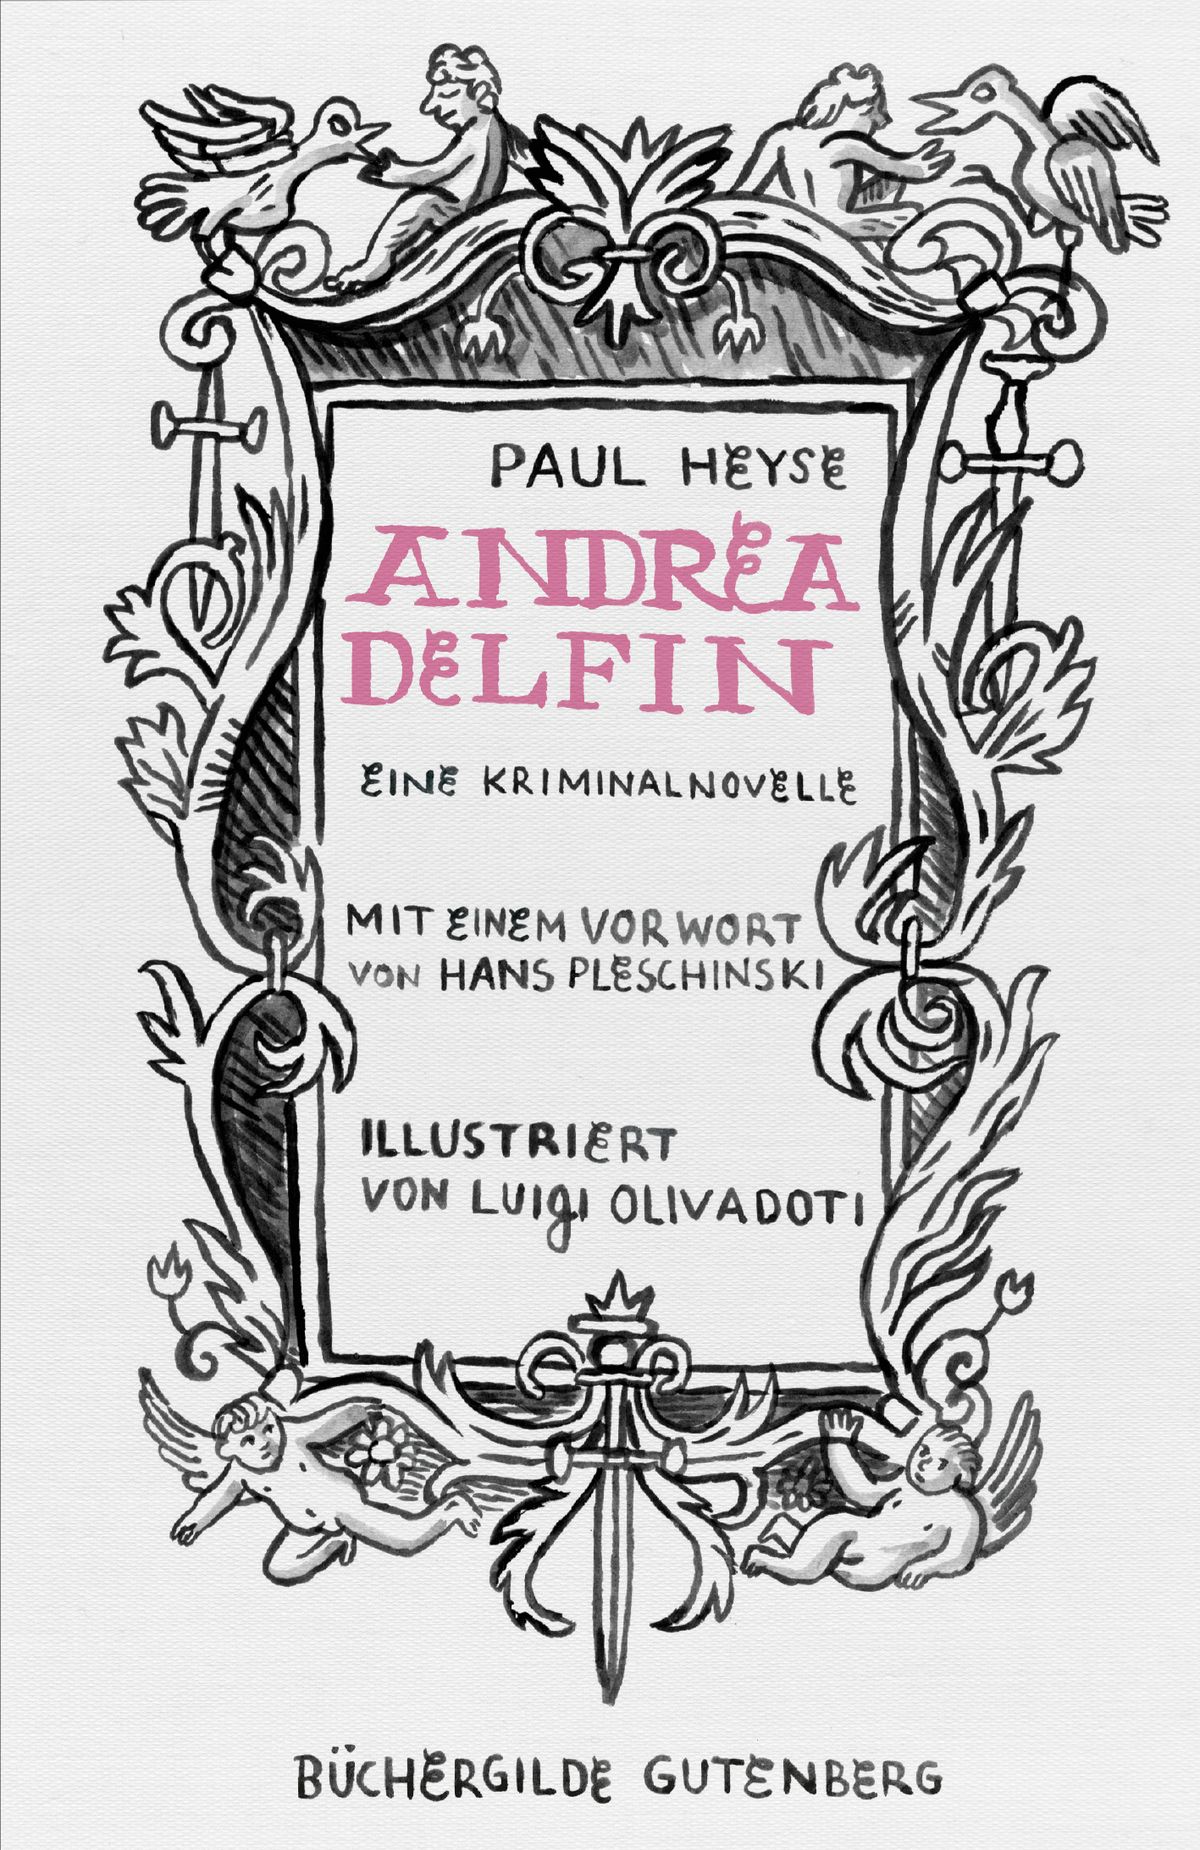 PAUL HEYSE
ANDREA
DELFIN
EINE KRIMINALNOVELLE
MIT EINEM VORWORT
VON HANS PLESCHINSKI
ILLUSTRIERT
VON LUIGI OLIVADOTI
BÜCHERGILDE GUTENBERG